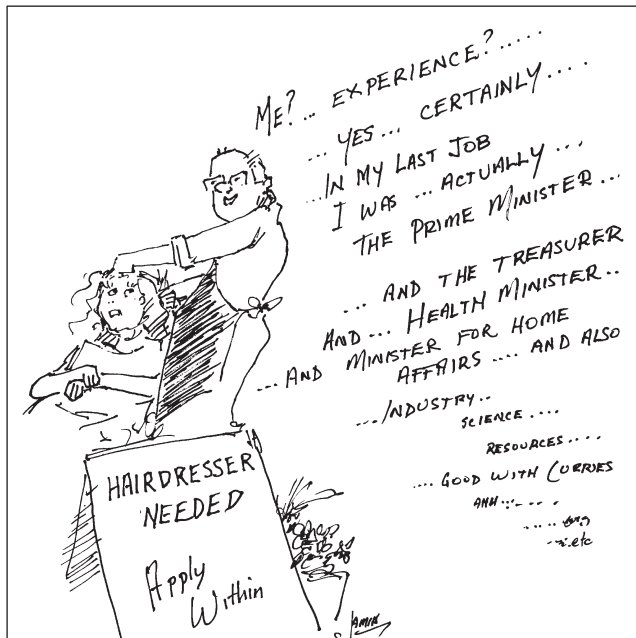 ME?... EXPERIENCE?.....
... YES... CERTAINLY....
...IN MY LAST JOB
I WAS ... ACTUALLY...
THE PRIME MINISTER...
... AND THE TREASURER
AND... HEALTH MINISTER..
...AND MINISTER FOR HOME
AFFAIRS.... AND ALSO
....INDUSTRY..
SCIENCE....
RESOURCES....
.... GOOD WITH CURRIES
AHH...
etc
HAIRDRESSER
NEEDED
Apply
Within